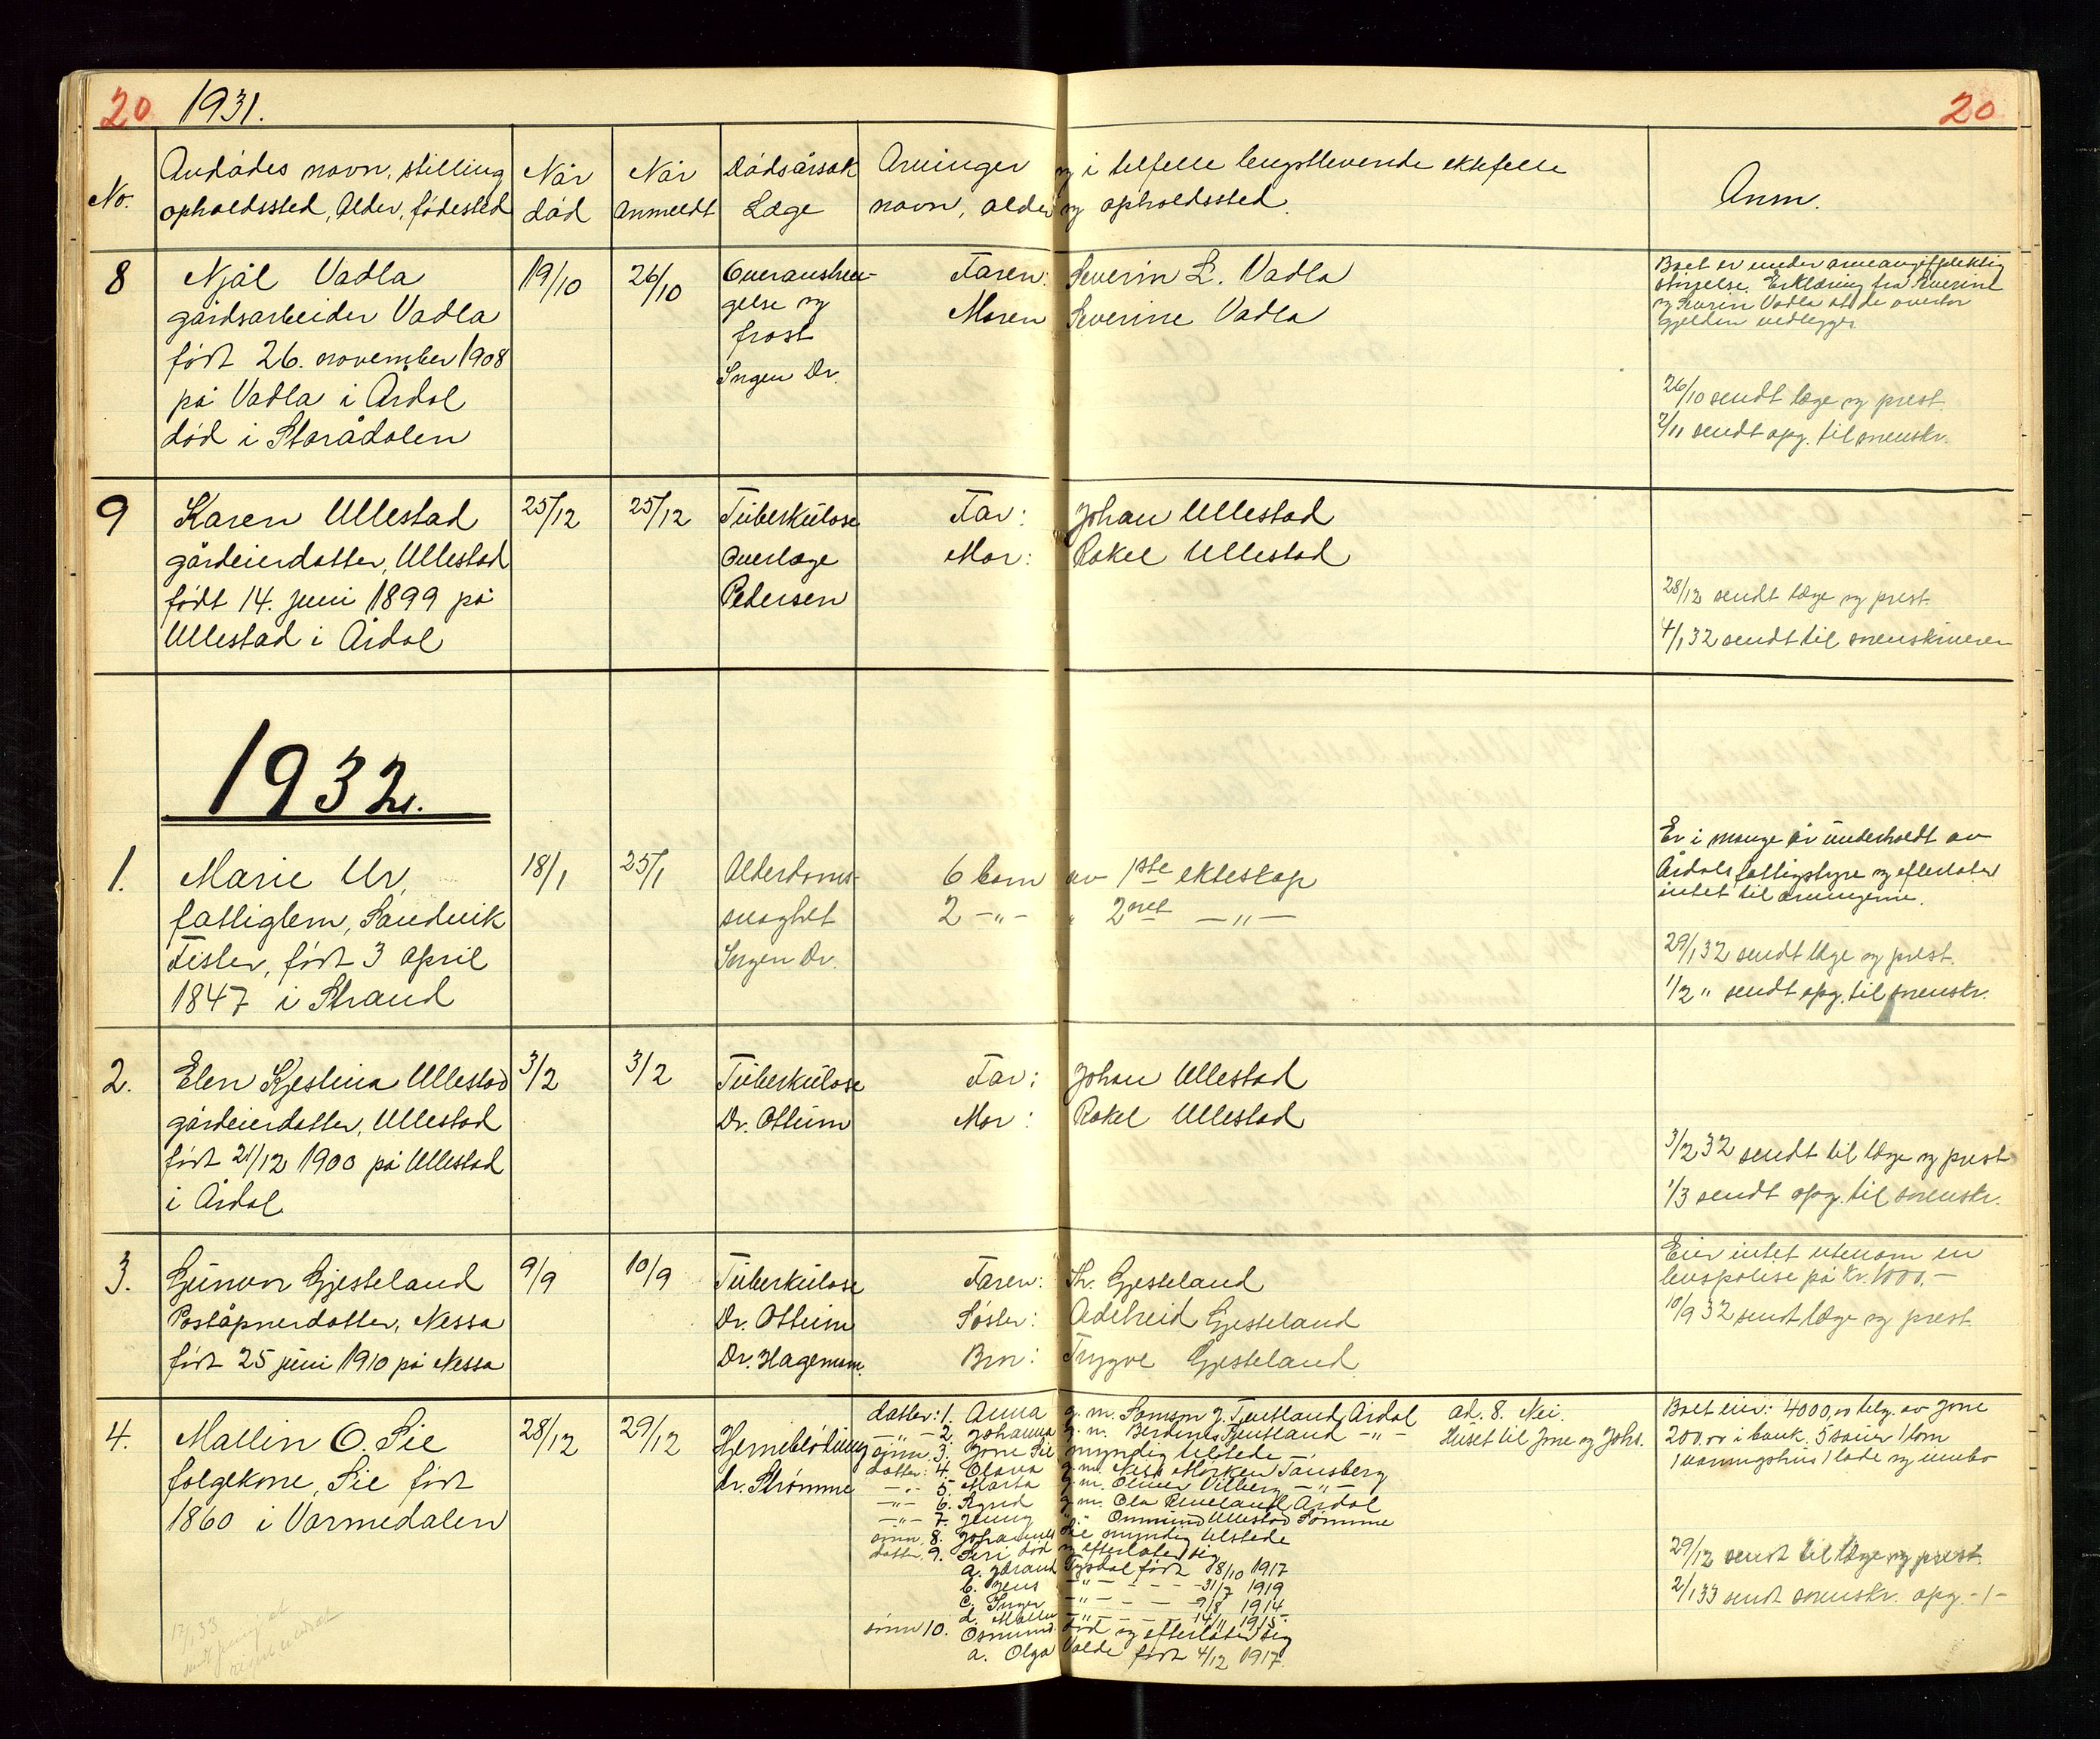 20 1931. 20
No.
Avdødes navn, stilling
opholdssted, Alder, fødested
Når
død
Når
anmeldt
Dødsårsak
Læge
Arvinger og i tilfelle lengstlevende ektefelle
navn, alder og opholdssted.
Anm.
8
Njål Vadla
gårdsarbeider Vadla
født 26. november 1908
på Vadla i Årdal
død i Storådalen
19/10
26/10
Overanstren-
gelse og
frost
Ingen Dr.
Faren: Severin L. Vadla
Moren Severine Vadla
Boet er under arveavgiftpliktig
størrelse. Erklæring fra Severine
og Severin Vadla at de overtar
gjelden vedlegges.
26/10 sendt læge og prest.
2/11 sendt opg. til sorenskr.
9
Karen Ullestad
gårdeierdatter, Ullestad
født 14. juni 1899 på
Ullestad i Årdal
25/12
25/12
Tuberkulose
Overlæge
Pedersen
Far: Johan Ullestad
Mor: Rakel Ullestad
28/12 sendt læge og prest.
4/1 32 sendt til sorenskriveren
1932.
1.
Marie Ur,
fattiglem, Sandvik
Fister, født 3 april
1847 i Strand
18/1
25/1
Alderdoms-
svaghet
Ingen Dr.
6 barn av 1ste ekteskap
2 -"- " 2net -"-
Er i mange år underholdt av
Årdals fattigstyre og efterlater
intet til arvingerne.
29/1 32 sendt læge og prest.
1/2 " sendt opg. til sorenskr.
2.
Elen Kjestina Ullestad
gårdeierdatter, Ullestad
født 21/12 1900 på Ullestad
i Årdal
3/2
3/2
Tuberkulose
Dr. Ottum
Far: Johan Ullestad
Mor: Rakel Ullestad
3/2 32 sendt til læge og prest
1/3 sendt opg. til sorenskr.
3.
Gunvor Gjesteland
Poståpnerdatter, Nessa
født 25 juni 1910 på Nessa
9/9
10/9
Tuberkulose
Dr. Ottum
Dr. Hagemann
Faren: Th. Gjesteland
Søster: Adelheid Gjesteland
Bror: Trygve Gjesteland
Eier intet utenom en
livspolise på kr. 1000,-
10/9 32 sendt læge og prest.
4.
Mallin O. Sie
folgekone, Sie født
1860 i Vormedalen
28/12
29/12
Hjerneblødning
dr. Strømme
datter: 1. Anna g.m. Samson J. Tjentland, Årdal
-"- 2. Johanna g.m. Berdines Tjentland -"-
sønn 3. Jone Sie myndig tilstede
datter: 4. Olava g.m. Nils Morken Tønsberg
-"- 5. Marta g.m. Oliver Vilberg -"-
-"- 6. g.m. Ola Årdal
-"- 7. Jenny "." Ommund Ullestad Sømme
sønn 8. Johannes Sie myndig tilstede
datter 9. Siri død og efterlater sig
a. Tysdal født 18/10 1917
b. Jens -"- - - - 31/7 1919
c. Inger -"- - - - 9/8 1914
d. Mallin -"- - - - 14/11 1915
sønn 10. Osmund død og efterlater sig
a. Olga Valde født 4/12 1917.
ad. 8. Nei.
Huset til Jone og Johs.
Boet eier: 4000,00 av Jone
200,00 i bank. 5 sauer 1 lam
1 våningshus 1 løde og innbo
29/12 sendt til læge og prest.
2/1 33 sendt sorenskr. opg. -1-
17/1 33